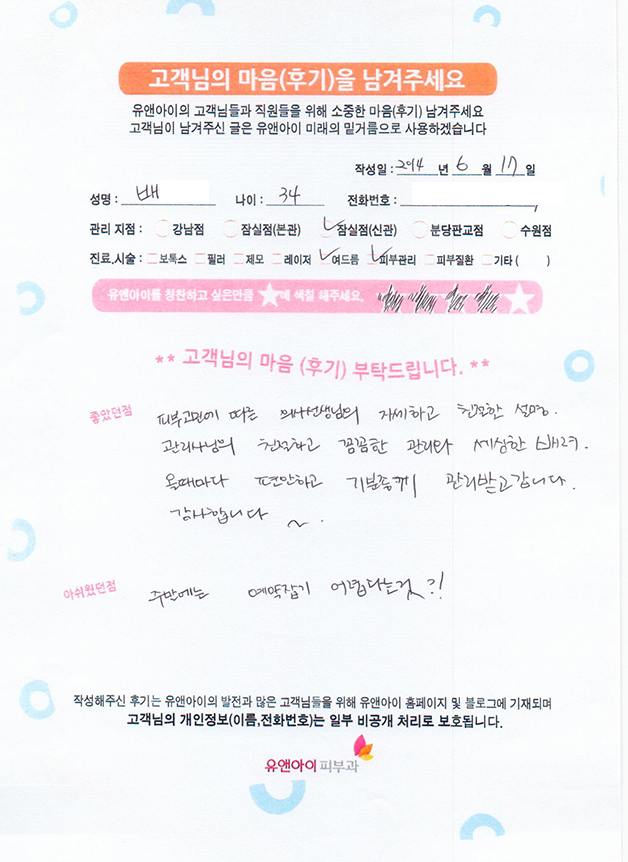 고객님의 마음(후기)을 남겨주세요
유앤아이의 고객님들과 직원들을 위해 소중한 마음(후기) 남겨주세요
고객님이 남겨주신 글은 유앤아이 미래의 밑거름으로 사용하겠습니다
작성일 : 2014 년 6 월 17 일
성명 : 배 나이 : 34 전화번호 :
관리 지점 : 강남점 잠실점(본관) 잠실점(신관) 분당판교점 수원점
진료,시술 : 보톡스 필러 제모 레이저 여드름 피부관리 피부질환 기타 ( )
유앤아이를 칭찬하고 싶은만큼 ★에 색칠 해주세요.
** 고객님의 마음 (후기) 부탁드립니다. **
좋았던점 피부고민에 따른 의사선생님의 자세하고 친절한 설명.
관리사님의 친절하고 꼼꼼한 관리와 세심한 배려.
올때마다 편안하고 기분좋게 관리받고갑니다.
감사합니다 ~.
아쉬웠던점 주말에는 예약잡기 어렵다는것?!
작성해주신 후기는 유앤아이의 발전과 많은 고객님들을 위해 유앤아이 홈페이지 및 블로그에 기재되며
고객님의 개인정보(이름,전화번호)는 일부 비공개 처리로 보호됩니다.
유앤아이 피부과